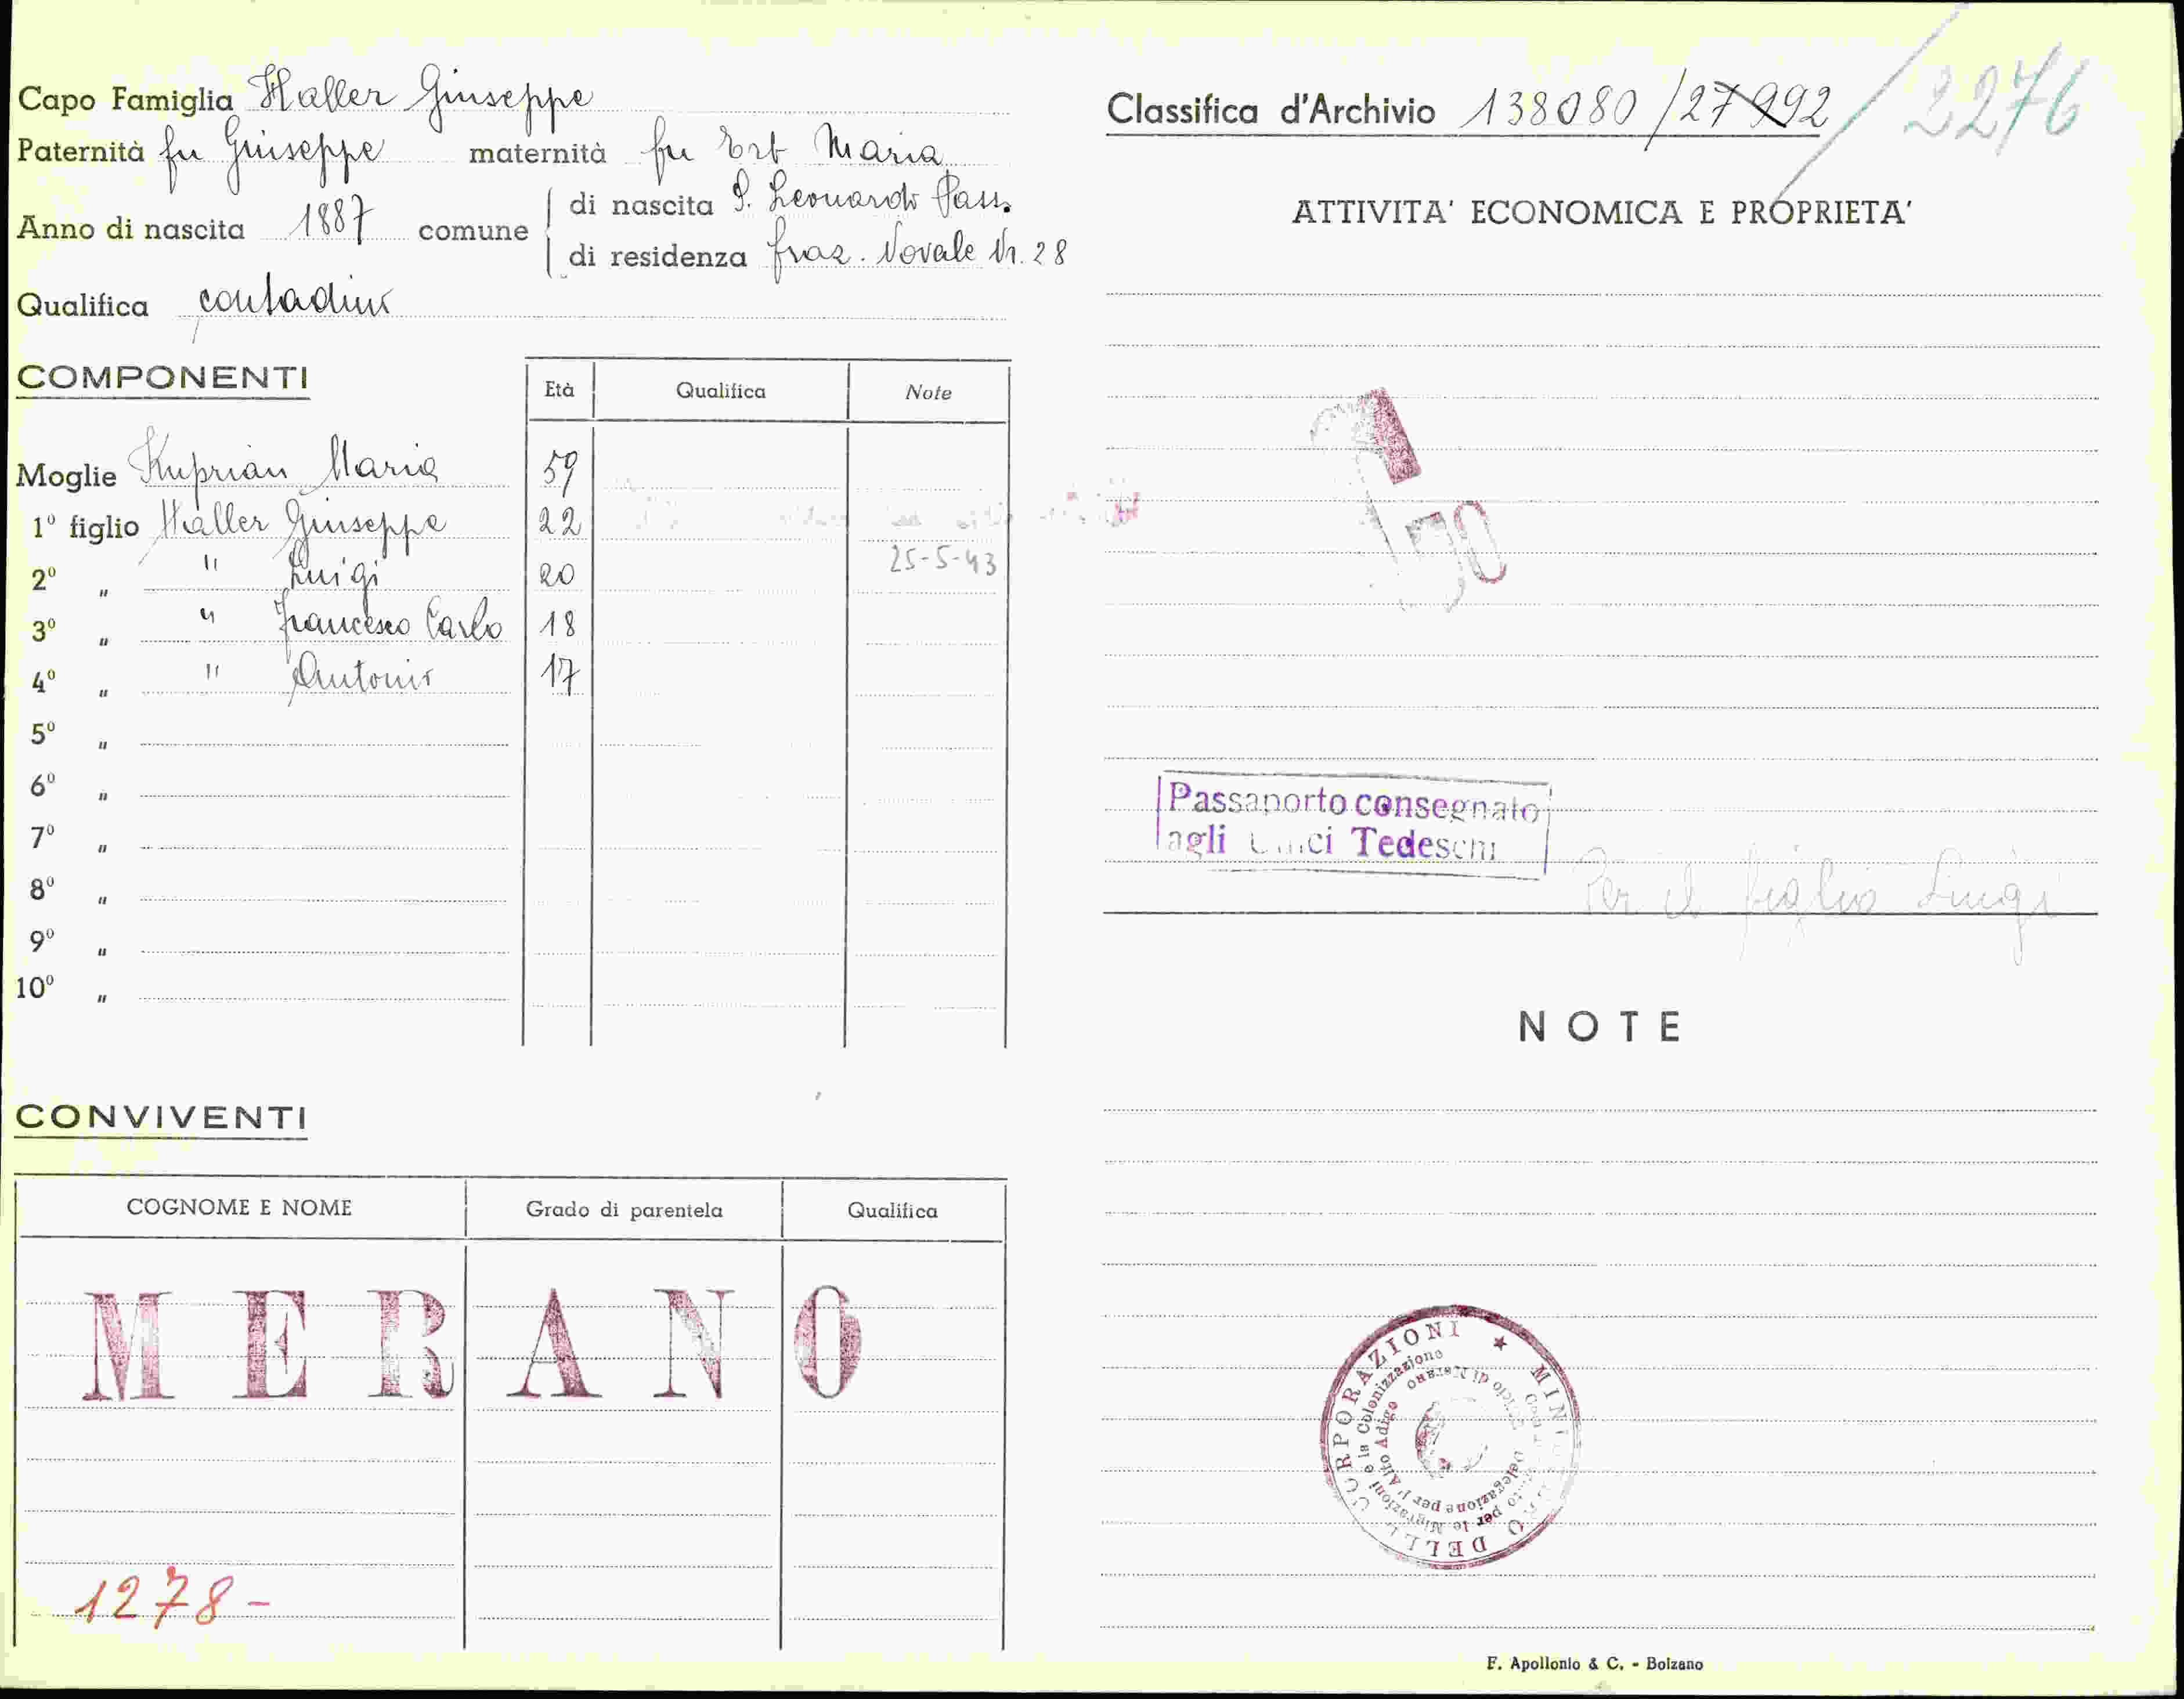 Capo Famiglia Haller Giuseppe
Paternità fu Giuseppe maternità fu Ert Maria
Anno di nascita 1887 comune di nascita S. Leonardo Pass.
di residenza fraz. Novale Nr. 28
Qualifica contadino
COMPONENTI
Età Qualifica Note
Moglie Kuprian Maria 59
1º figlio Haller Giuseppe 22
2º " " Luigi 20 25-5-43
3º " " Francesco Carlo 18
4º " " Antonio 17
5º "
6º "
7º "
8º "
9º "
10º "
CONVIVENTI
COGNOME E NOME Grado di parentela Qualifica
MERANO
1278-
Classifica d'Archivio 138080/27992/2276
ATTIVITA' ECONOMICA E PROPRIETA'
Passaporto consegnato
agli Uffici Tedeschi
Per il figlio Luigi
NOTE
MINISTERO DELLE CORPORAZIONI ★
per le Migrazioni e la Colonizzazione
Delegazione per l'Alto Adige
Ufficio di Merano
F. Apollonio & C. - Bolzano